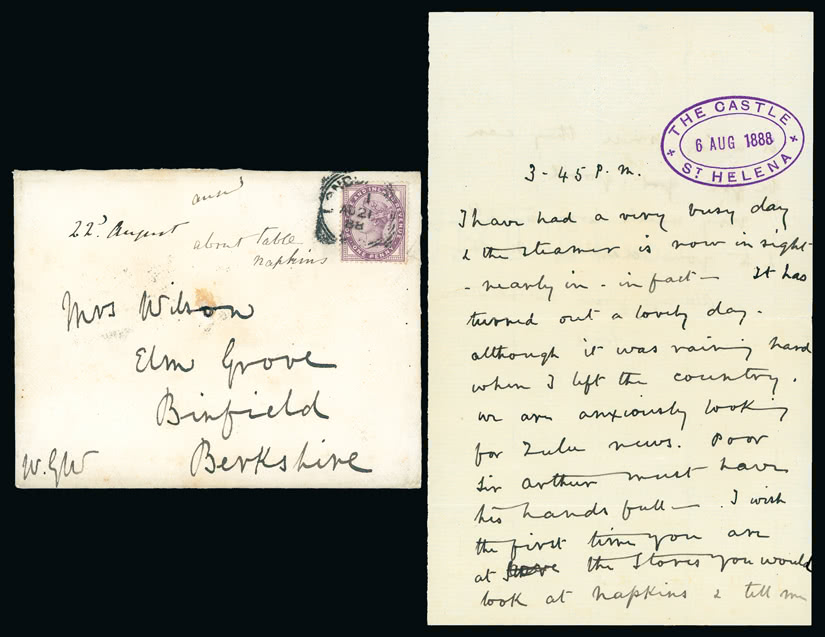 ansd
22d August
about table
napkins
LONDON
1
AU 21
88
ONE PENNY
Mrs Wilson
Elm Grove
Binfield
Berkshire
W.GW
THE CASTLE
6 AUG 1888
ST HELENA
3-45 P.m.
I have had a very busy day
& the steamer is now in sight -
- nearly in - in fact - It has
turned out a lovely day -
although it was raining hard
when I left the country.
we are anxiously looking
for Zulu news. Poor
Sir Arthur must have
his hands full - . I wish
the first time you are
at the Stores you would
look at napkins & tell me